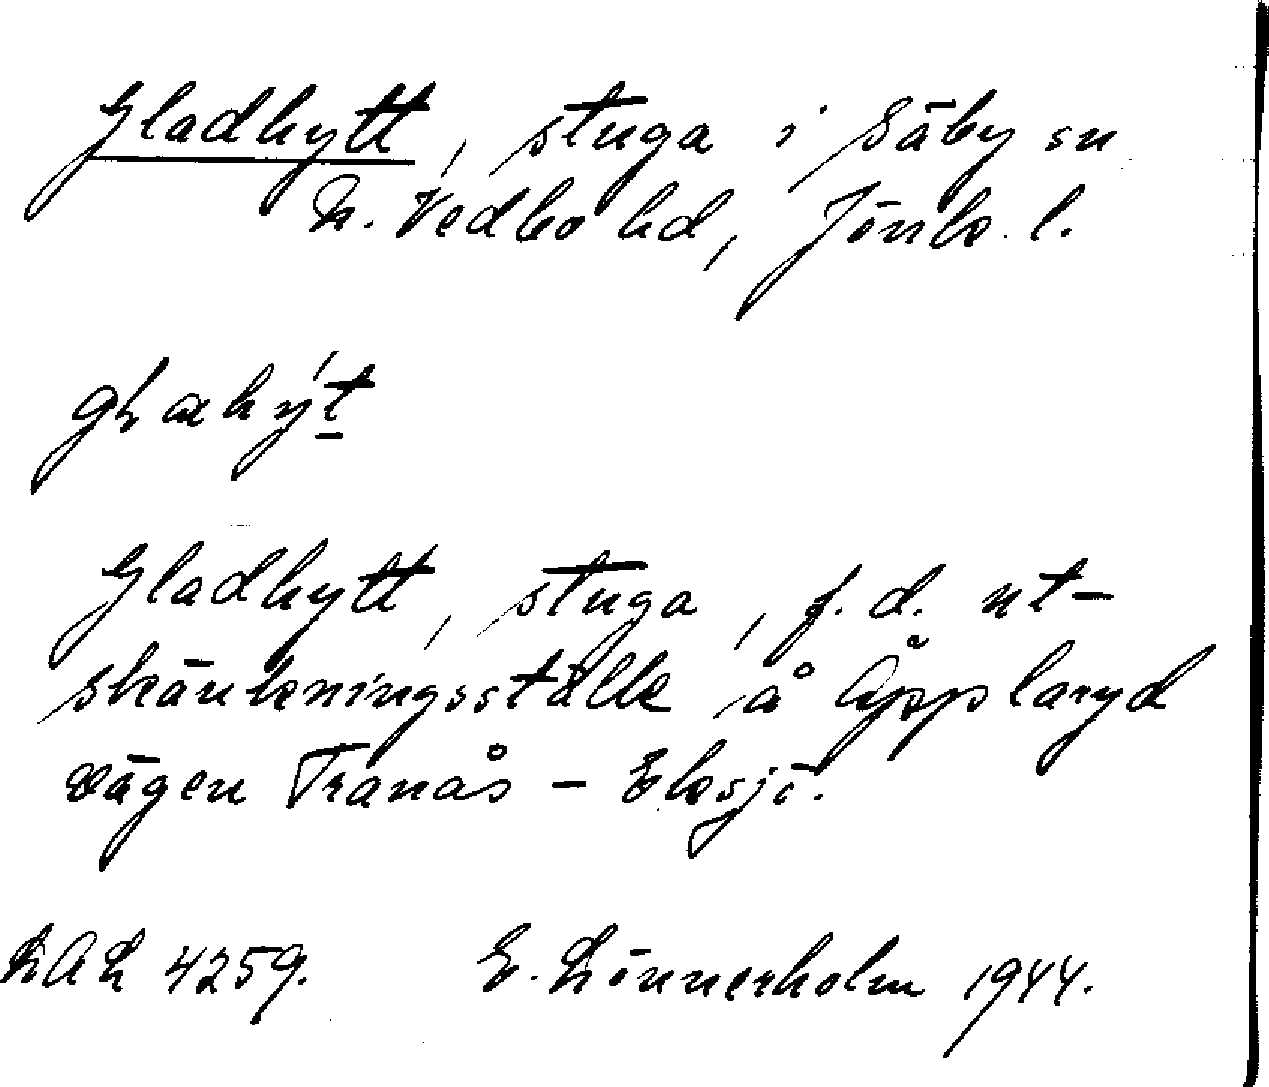 Gladhytt, stuga i Säby sn
N. Vedbo hd, Jönk. l.
gLahýt
Gladhytt, stuga, f.d. ut-
skänkningsställe å Äpplaryd
vägen Tranås - Eksjö.
LAL 4259. E. Lönnerholm 1944.